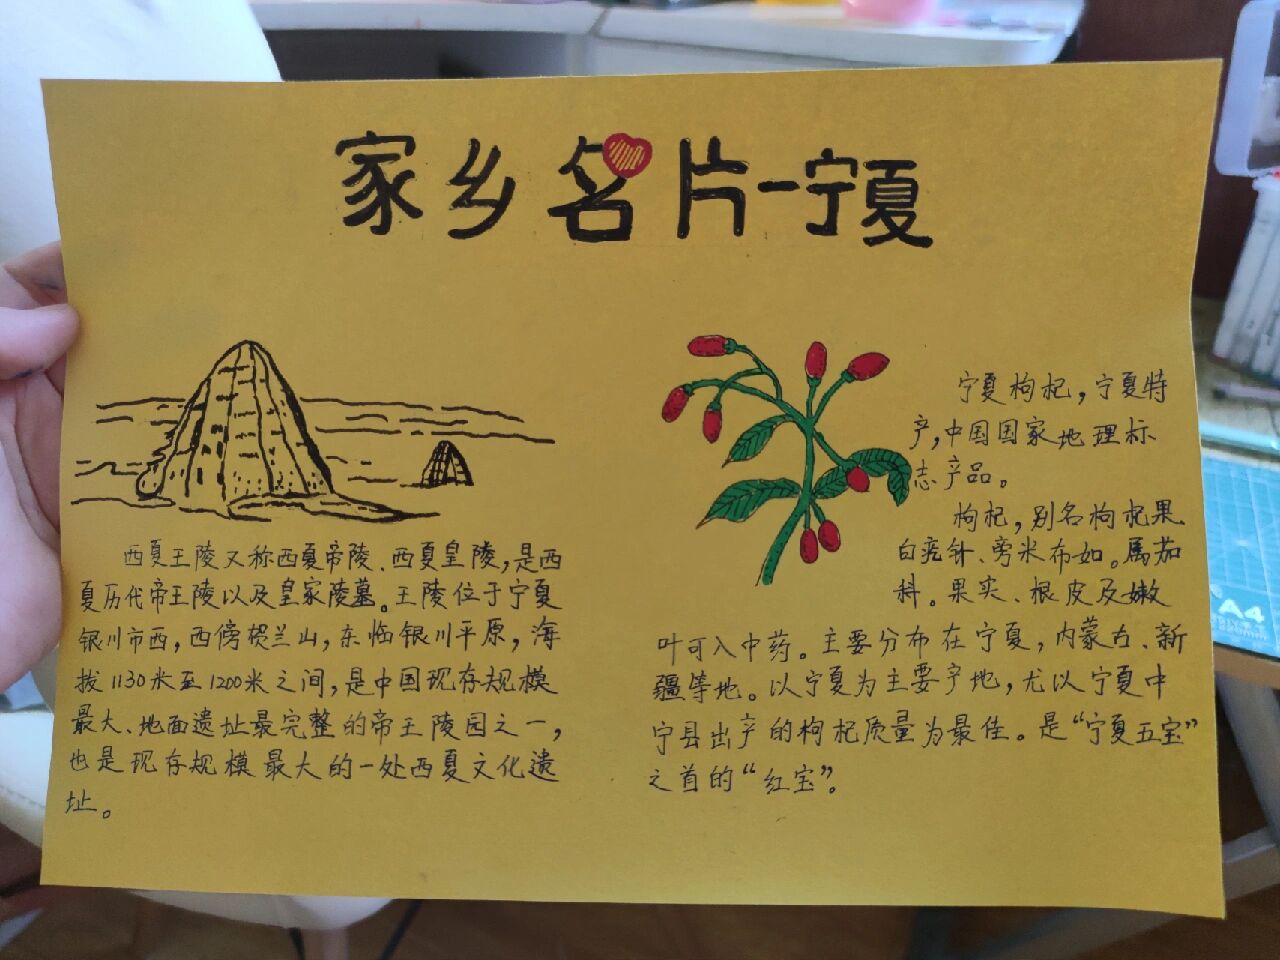 家乡名片-宁夏
西夏王陵又称西夏帝陵、西夏皇陵，是西
夏历代帝王陵以及皇家陵墓。王陵位于宁夏
银川市西，西傍贺兰山，东临银川平原，海
拔1130米至1200米之间，是中国现存规模
最大、地面遗址最完整的帝王陵园之一，
也是现存规模最大的一处西夏文化遗
址。
宁夏枸杞，宁夏特
产，中国国家地理标
志产品。
枸杞，别名枸杞果
白疙针、旁米布如。属茄
科。果实、根皮及嫩
叶可入中药。主要分布在宁夏，内蒙古、新
疆等地。以宁夏为主要产地，尤以宁夏中
宁县出产的枸杞质量为最佳。是“宁夏五宝”
之首的“红宝”。
A4